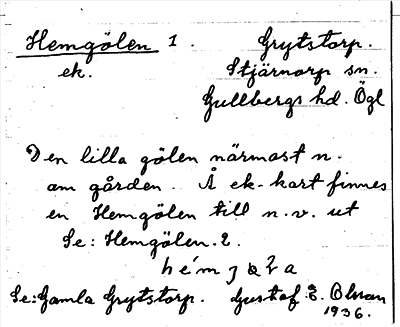 Hemgölen 1. Grytstorp.
ek. Stjärnorp sn.
Gullbergs hd. Ögl
Den lilla gölen närmast n.
om gården. Å ek-kart finnes
en Hemgölen till n.v. ut
Se: Hemgölen. 2.
Se: Gamla Grytstorp. Gustaf E.
1936.